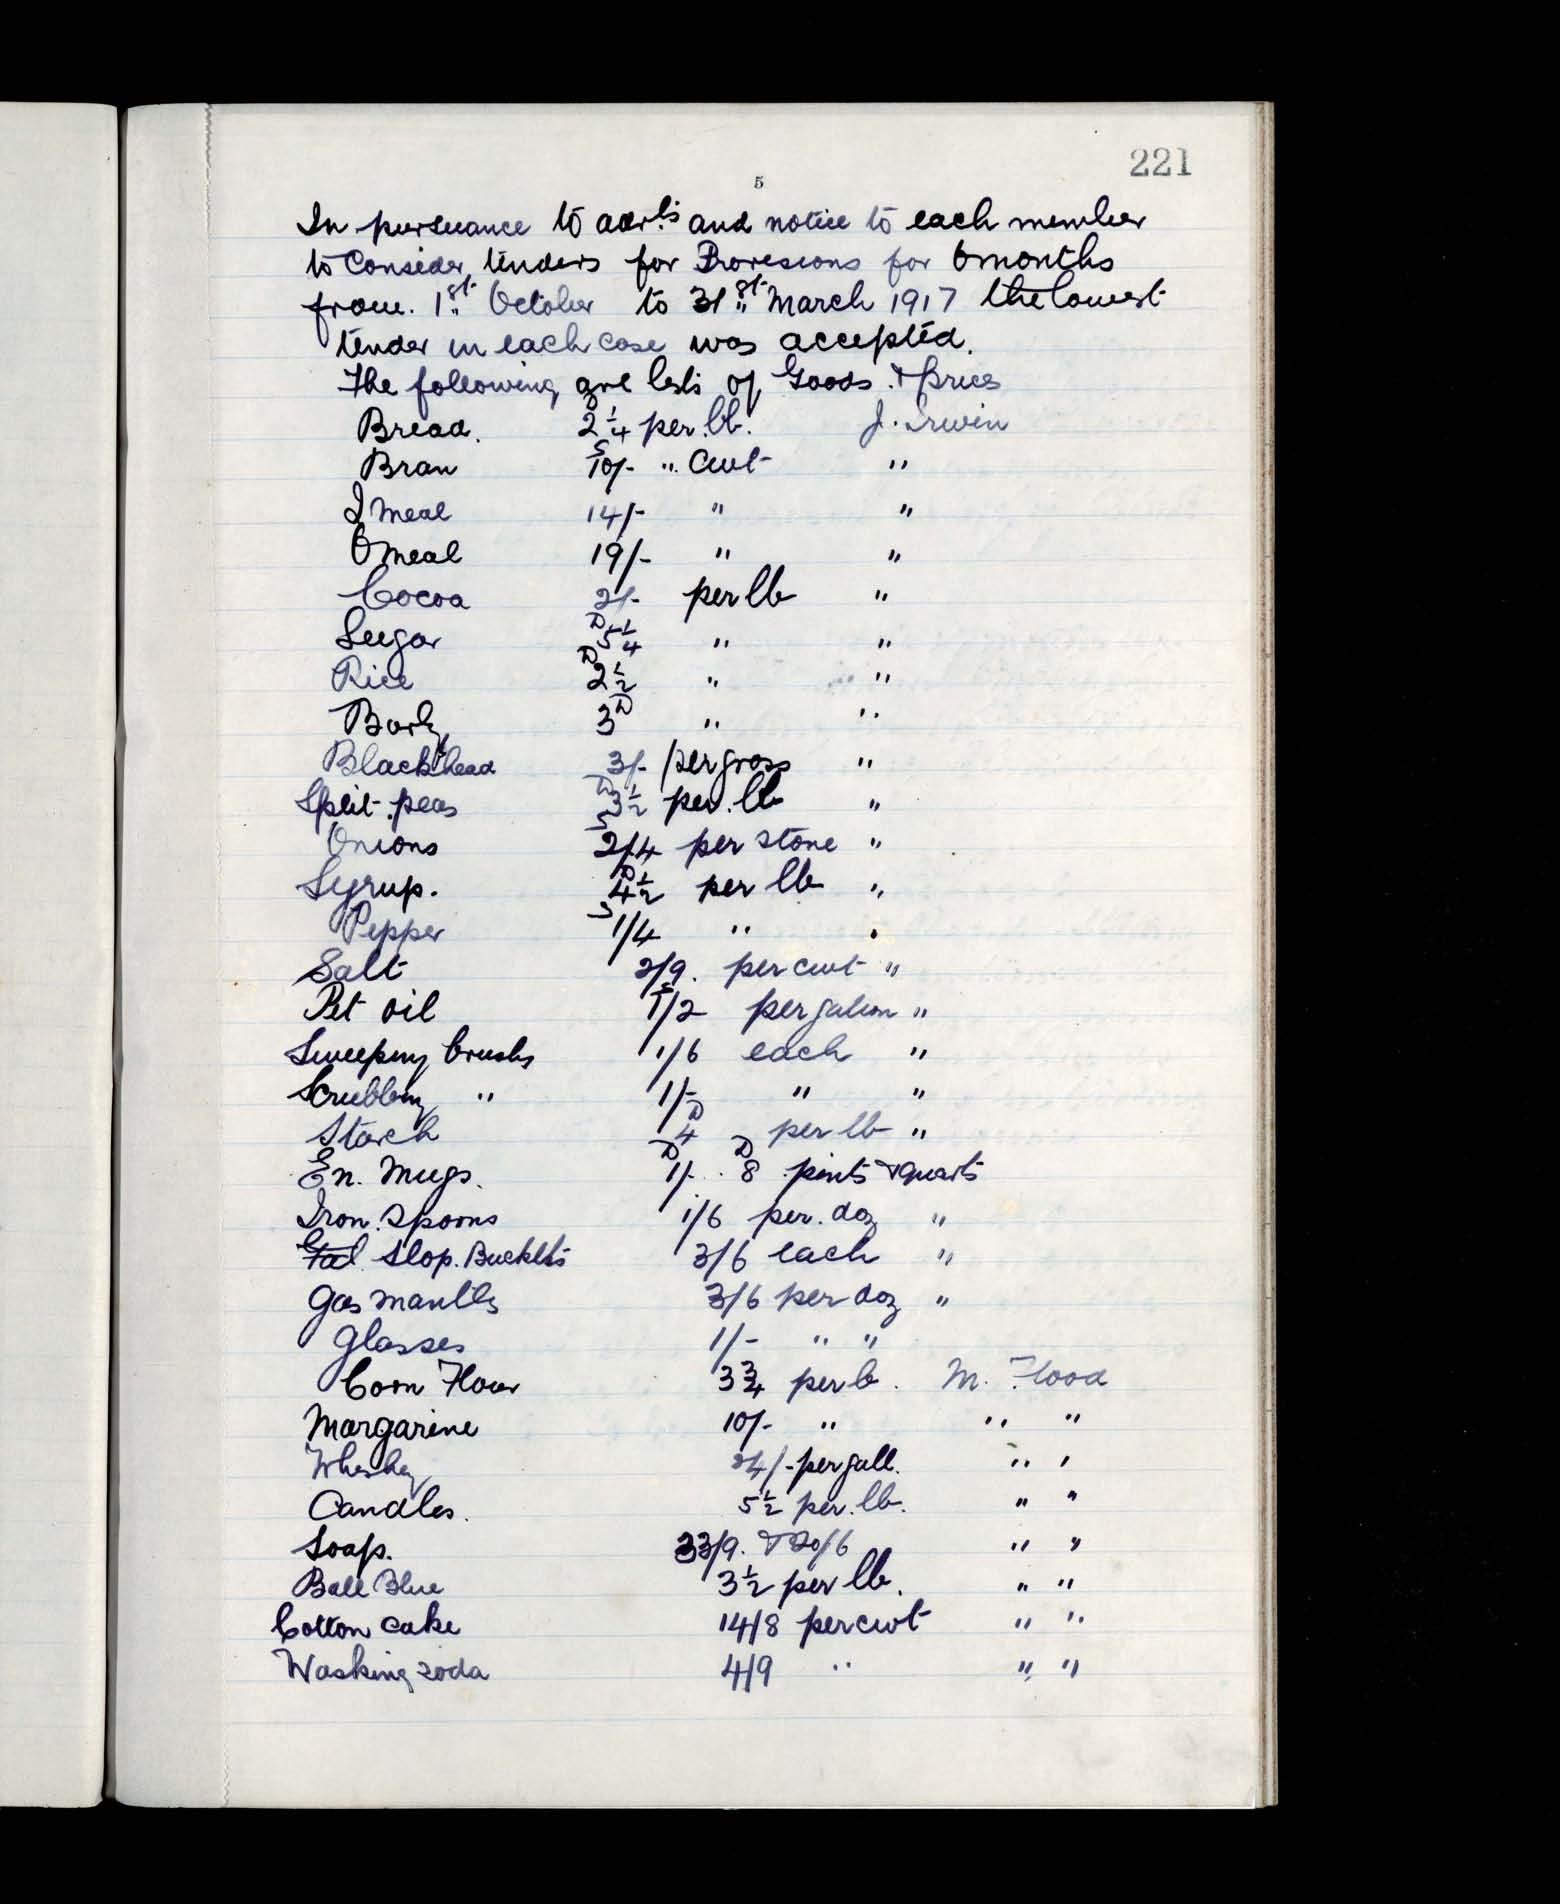 221
5
In pursuance to advts and notice to each member
to Consider tenders for Provesions for 6 months
from. 1st October to 31st March 1917 the lowest
tender in each case was accepted.
The following are lists of Goods. & prices
Bread. 2¼ᴰ per. lb. J. Irwin
Bran 10/-ˢ " Cwt "
I Meal 14/- " "
O Meal 19/- " "
Cocoa 2/- per lb "
Sugar 5¼ᴰ " "
Rice 2½ᴰ " "
Barly 3ᴰ " "
Black head 3/- per gross "
Split. peas 3½ᴰ per. lb "
Onions 2/4ˢ per stone "
Syrup. 4½ᴰ per lb "
Pepper 1/4ˢ " "
Salt 2/9. per cwt "
Pet oil 1/2ˢ per galon "
Sweeping brushs 1/6 each "
Scrubbing " 1/- " "
Starch 4ᴰ per lb "
En. Mugs. 1/-ᴰ . 8ᴰ pints & quarts
Iron. Spoons 1/6 per. doz "
Slop. Buckets 3/6 each "
Gas mantles 3/6 per doz "
Glasses 1/- " "
Corn Flour 3¾ per lb. M. Flood
Margarine 10/- " " "
Wheskey 24/- per gall. " "
Candles. 5½ per. lb. " "
Soap. 33/9. & 20/6 " "
Ball Blue 3½ per lb. " "
Cotton cake 14/8 per cwt " "
Washing soda 4/9 " " "